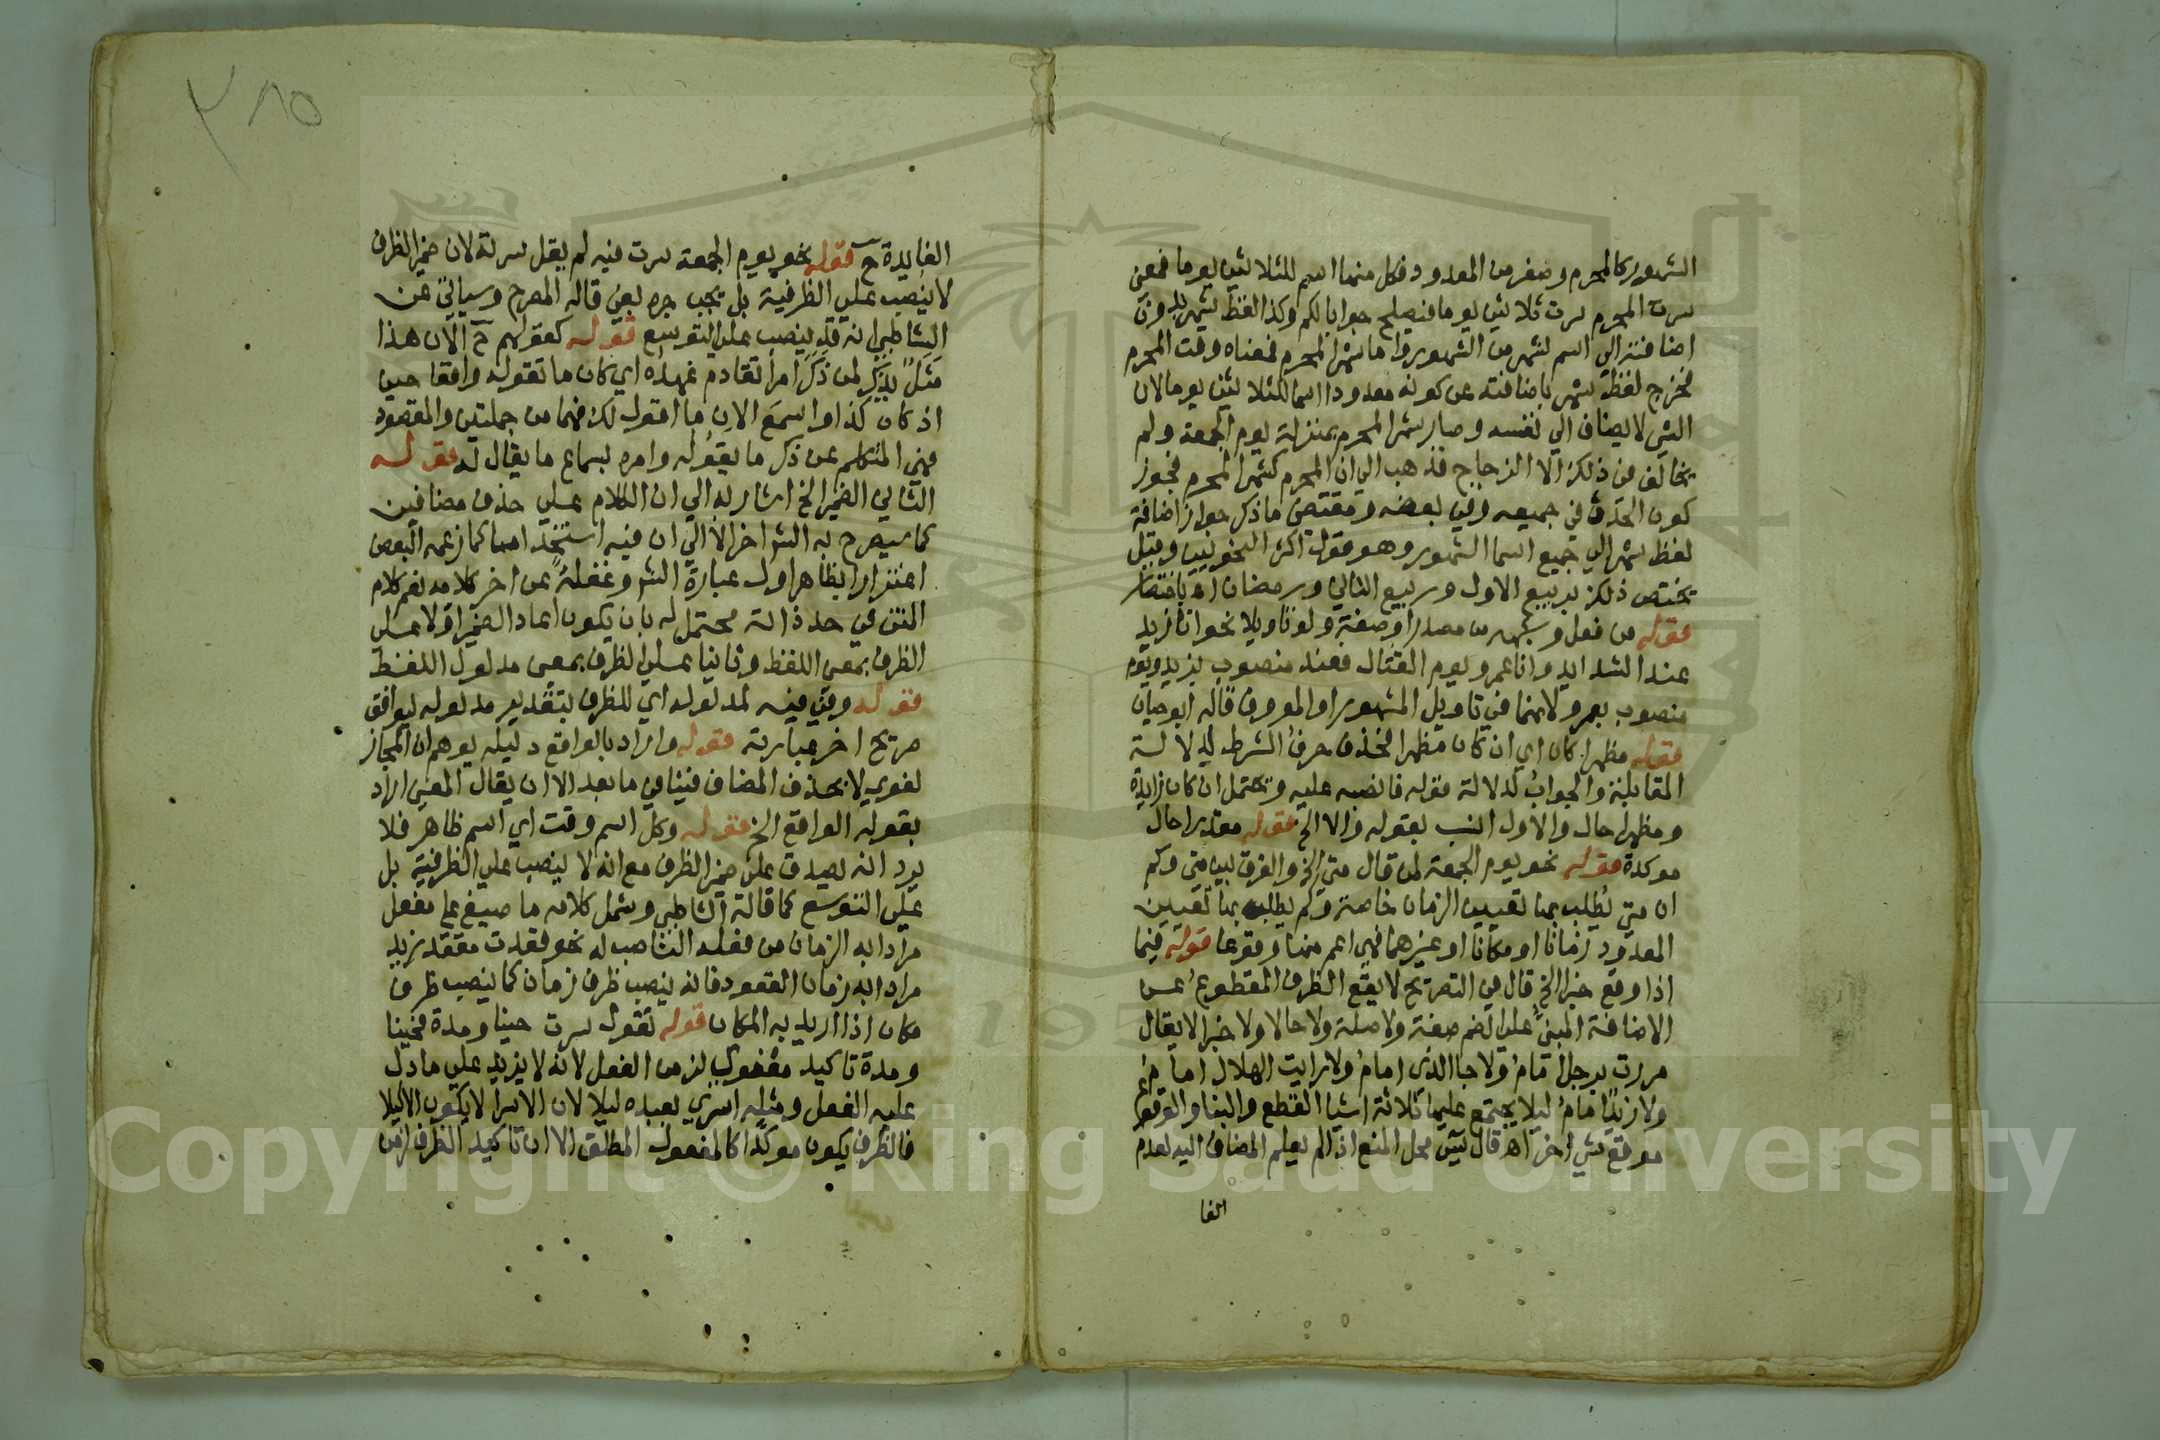 الشهور كالمحرم وصفر من المعدود فكل منهما اسم للثلاثين يوما فمعنى
سرت المحرم سرت ثلاثين يوما فيصلح جوابا لكم وكذا لفظ شهر بدون
اضافته الي اسم شهر من الشهور واما شهر المحرم فمعناه وقت المحرم
فخرج لفظ شهر باضافته عن كونه معدودا اسما للثلاثين يوما لان
الشي لا يضاف الي نفسه وصار شهر المحرم بمنزلة يوم الجمعة ولم
يخالف في ذلك الا الزجاج فذهب الي ان المحرم كشهر المحرم فيجوز
كون الحدث في جميعه وفي بعضه ومقتضى ما ذكر جواز اضافة
لفظ شهر الي جميع اسما الشهور وهو قول اكثر النحويين وقيل
يختص ذلك بربيع الاول وربيع الثاني ورمضان اه باختصار
قوله من فعل وشبهه من مصدر او صفة ولو تاويلا نحو انا زيد
عند الشدايد وانا عمرو يوم القتال فعند منصوب بزيد ويوم
منصوب بعمرو لانهما في تاويل المشهور او المعروف قاله ابو حيان
قوله مظهرا كان اي ان كان مظهرا فحذف حرف الشرط لدلالة
المقابلة والجواب لدلالة قوله فانصبه عليه ويحتمل ان كان زايدة
ومظهرا حال والاول انسب بقوله والا الخ قوله مقدرا حال
موكدة قوله نحو يوم الجمعة لمن قال متى الخ والفرق بين متى وكم
ان متي يطلب بها تعيين الزمان خاصة وكم يطلب بها تعيين
المعدود زمانا او مكانا او غيرهما فهي اعم منها وقوعا قوله فيما
اذا وقع خبرا الخ قال في التصريح لا يقع الظرف المقطوع عن
الاضافة المبني على الضم صفة ولا صلة ولا حالا ولا خبرا لا يقال
مررت برجل امام ولا جا الذي امام ولا رايت الهلال امام
ولا زيد امام ليلا يجتمع عليها ثلاثة اشيا القطع والبنا والوقوع
موقع شي اخر اه قال يس محل المنع اذا لم يعلم المضاف اليه لعدم
الفا
٣٨٥
الفايدة ح قوله نحو يوم الجمعة سرت فيه لم يقل سرته لان ضمير الظرف
لا ينصب علي الظرفية بل يجب جره بفي قاله المصرح وسياتي عن
الشاطبي انه قد ينصب على التوسع قوله كقولهم ح الان هذا
مثل يذكر لمن ذكر امرا تقادم عهده اي كان ما تقوله واقعا حين
اذ كان كذا واسمع الان ما اقول لك فهما من جملتين والمقصود
نهي المتكلم عن ذكر ما يقوله وامره بسماع ما يقال له قوله
الثاني الضمير الخ اشار به الي ان الكلام على حذف مضافين
كما سيصرح به الش اخرا لا الي ان فيه استخداما كما زعمه البعض
اغترارا بظاهر اول عبارة الش وغفلة عن اخر كلامه نعم كلام
المتن في حد ذاته محتمل له بان يكون اعاد الضمير اولا على
الظرف بمعنى اللفظ وثانيا على الظرف بمعنى مدلول اللفظ
قوله وفي فيه لمدلوله اي للظرف بتقدير مدلوله ليوافق
صريح اخر عبارته قوله واراد بالواقع دليله يوهم ان المجاز
لغوي لا بحذف المضاف فينافي ما بعد الا ان يقال المعنى اراد
بقوله الواقع الخ قوله وكل اسم وقت اي اسم ظاهر فلا
يرد انه يصدق على ضمير الظرف مع انه لا ينصب علي الظرفية بل
على التوسع كما قاله الشاطبي وشمل كلامه ما صيغ على مفعل
مرادا به الزمان من فعله الناصب له نحو قعدت مقعد زيد
مرادا به زمان القعود فانه ينصب ظرف زمان كما ينصب ظرف
مكان اذا اريد به المكان قوله تقول سرت حينا ومدة فحينا
ومدة تاكيد معنوي لزمن الفعل لانه لا يزيد على ما دل
عليه الفعل ومثله اسري بعبده ليلا لان الاسرا لا يكون الا ليلا
فالظرف يكون موكدا كالمفعول المطلق الا ان تاكيد الظرف لزمن
Copyright © King Saud University